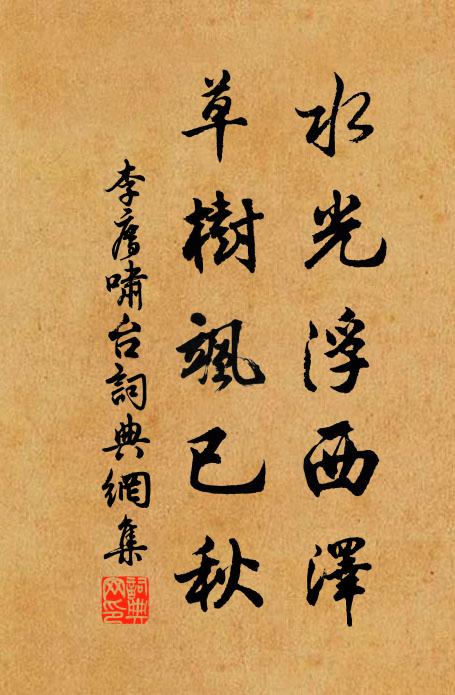 水光浮西澤
草樹颯已秋
李廌嘯台詞典網集
詞典网印